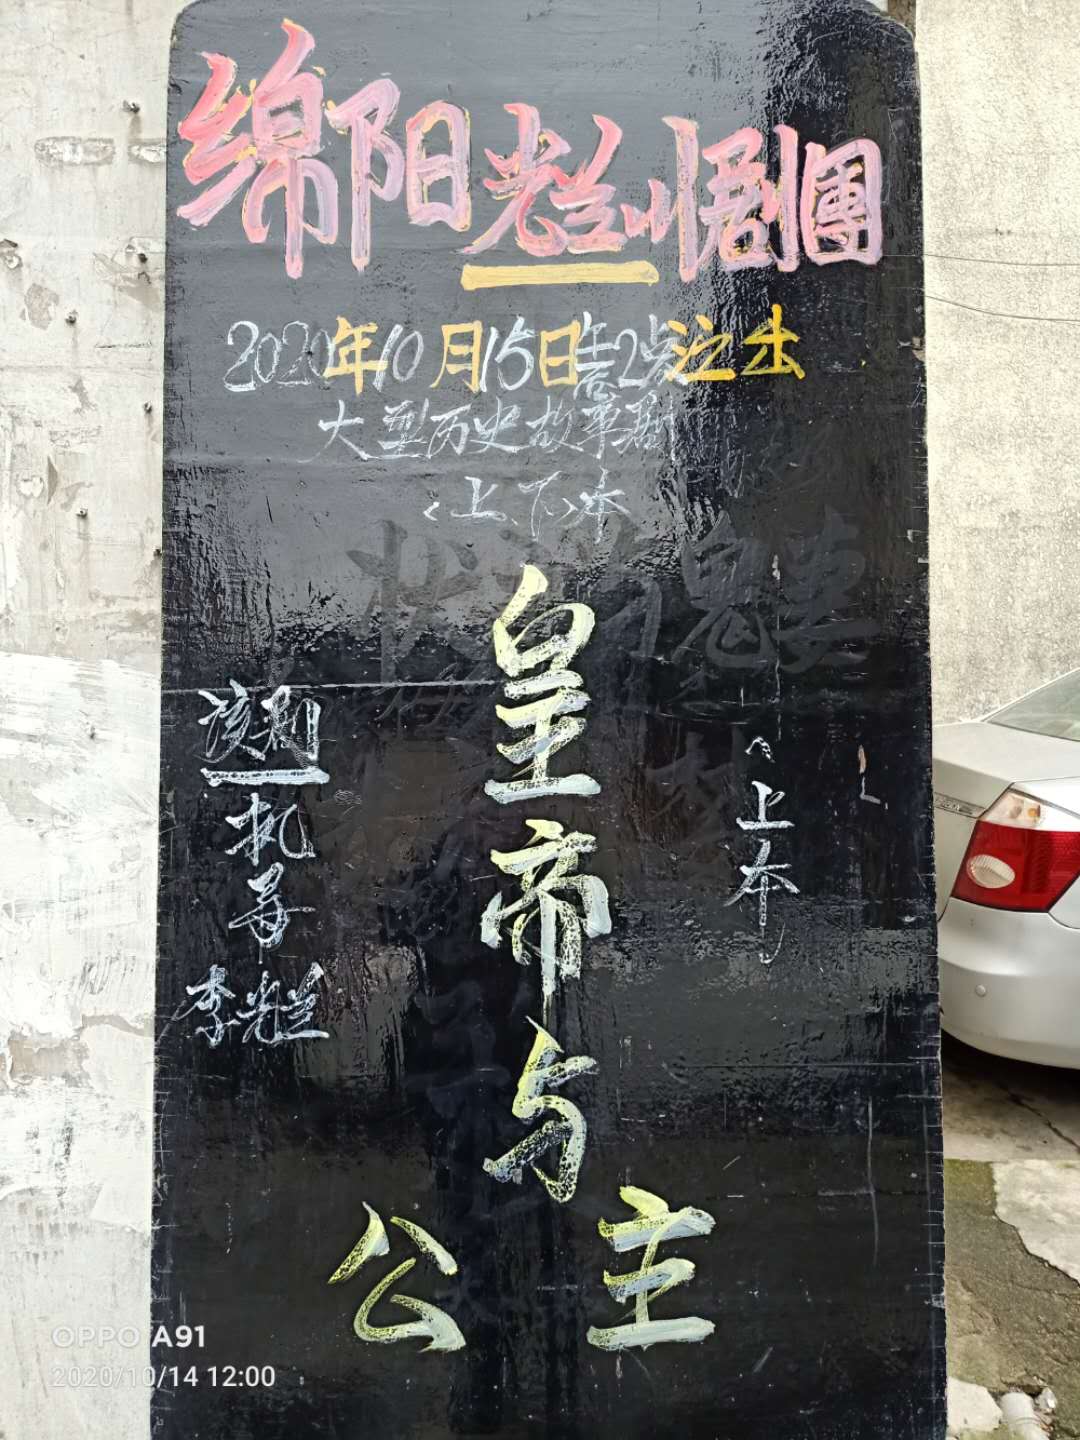 绵阳光兰川剧團
2020年10月15日 2点演出
大型历史故事剧
<上、下>本
皇帝与
公主
<上本>
该剧
执导
李光兰
OPPO A91
2020/10/14 12:00